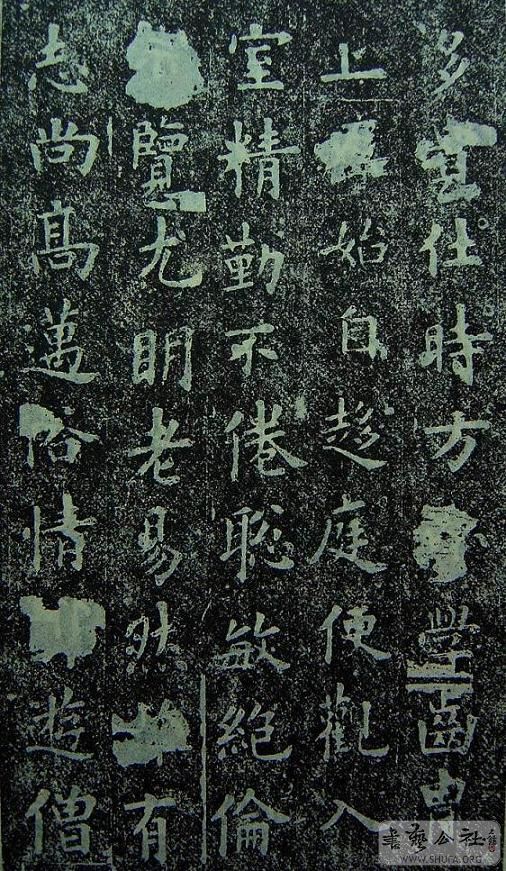 多仕時方學齒胄
上始自趍庭便觀入
室精勤不倦聡敏絶倫
覽尤明老易然有
志尚高邁俗情遊僧
書藝公社
WWW.SHUFA.ORG